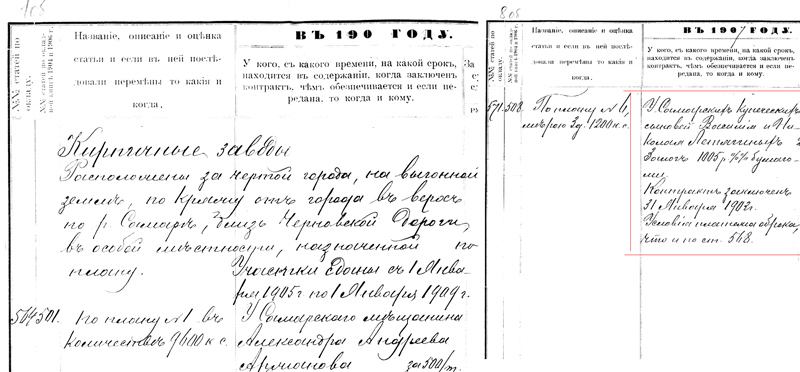 705
№№ статей по окладу.
№№ статей по оклад-
ной книгѣ 1904 и 1906 г.
Названіе, описаніе и оцѣнка
статьи и если въ ней послѣ-
довали перемѣны то какія и
когда.
ВЪ 190 ГОДУ.
У кого, съ какого времени, на какой срокъ,
находится въ содержаніи, когда заключенъ
контрактъ, чѣмъ обезпечивается и если пе-
редана, то когда и кому.
За
Кирпичные заводы
Расположены за чертой города, на выгонной
землѣ, по кряжу отъ города въ верстѣ
по р. Самарѣ, близь Черновской дороги,
въ особой мѣстности, назначенной по
плану.
Участки сданы съ 1 Янва-
ря 1905 г. по 1 Января 1909 г.
564
501.
По плану № 1 въ
количествѣ 9600 к с.
У Самарскаго мѣщанина
Александра Андреева
за 500/т.
805
№№ статей по окладу.
№№ статей по оклад-
ной книгѣ 1904 и 1906 г.
Названіе, описаніе и оцѣнка
статьи и если въ ней послѣ-
довали перемѣны то какія и
когда.
ВЪ 190 ГОДУ.
У кого, съ какого времени, на какой срокъ,
находится въ содержаніи, когда заключенъ
контрактъ, чѣмъ обезпечивается и если пе-
редана, то когда и кому.
571.
508.
По плану № 11,
мѣрою 3 д. 1200 к. с.
У Самарскихъ купеческихъ
сыновей Василія и Ни-
колая
Залогъ 1005 р. %% бумага-
ми
Контрактъ заключенъ
31 Января 1902 г.
Условія платежа оброка,
что и по ст. 568.